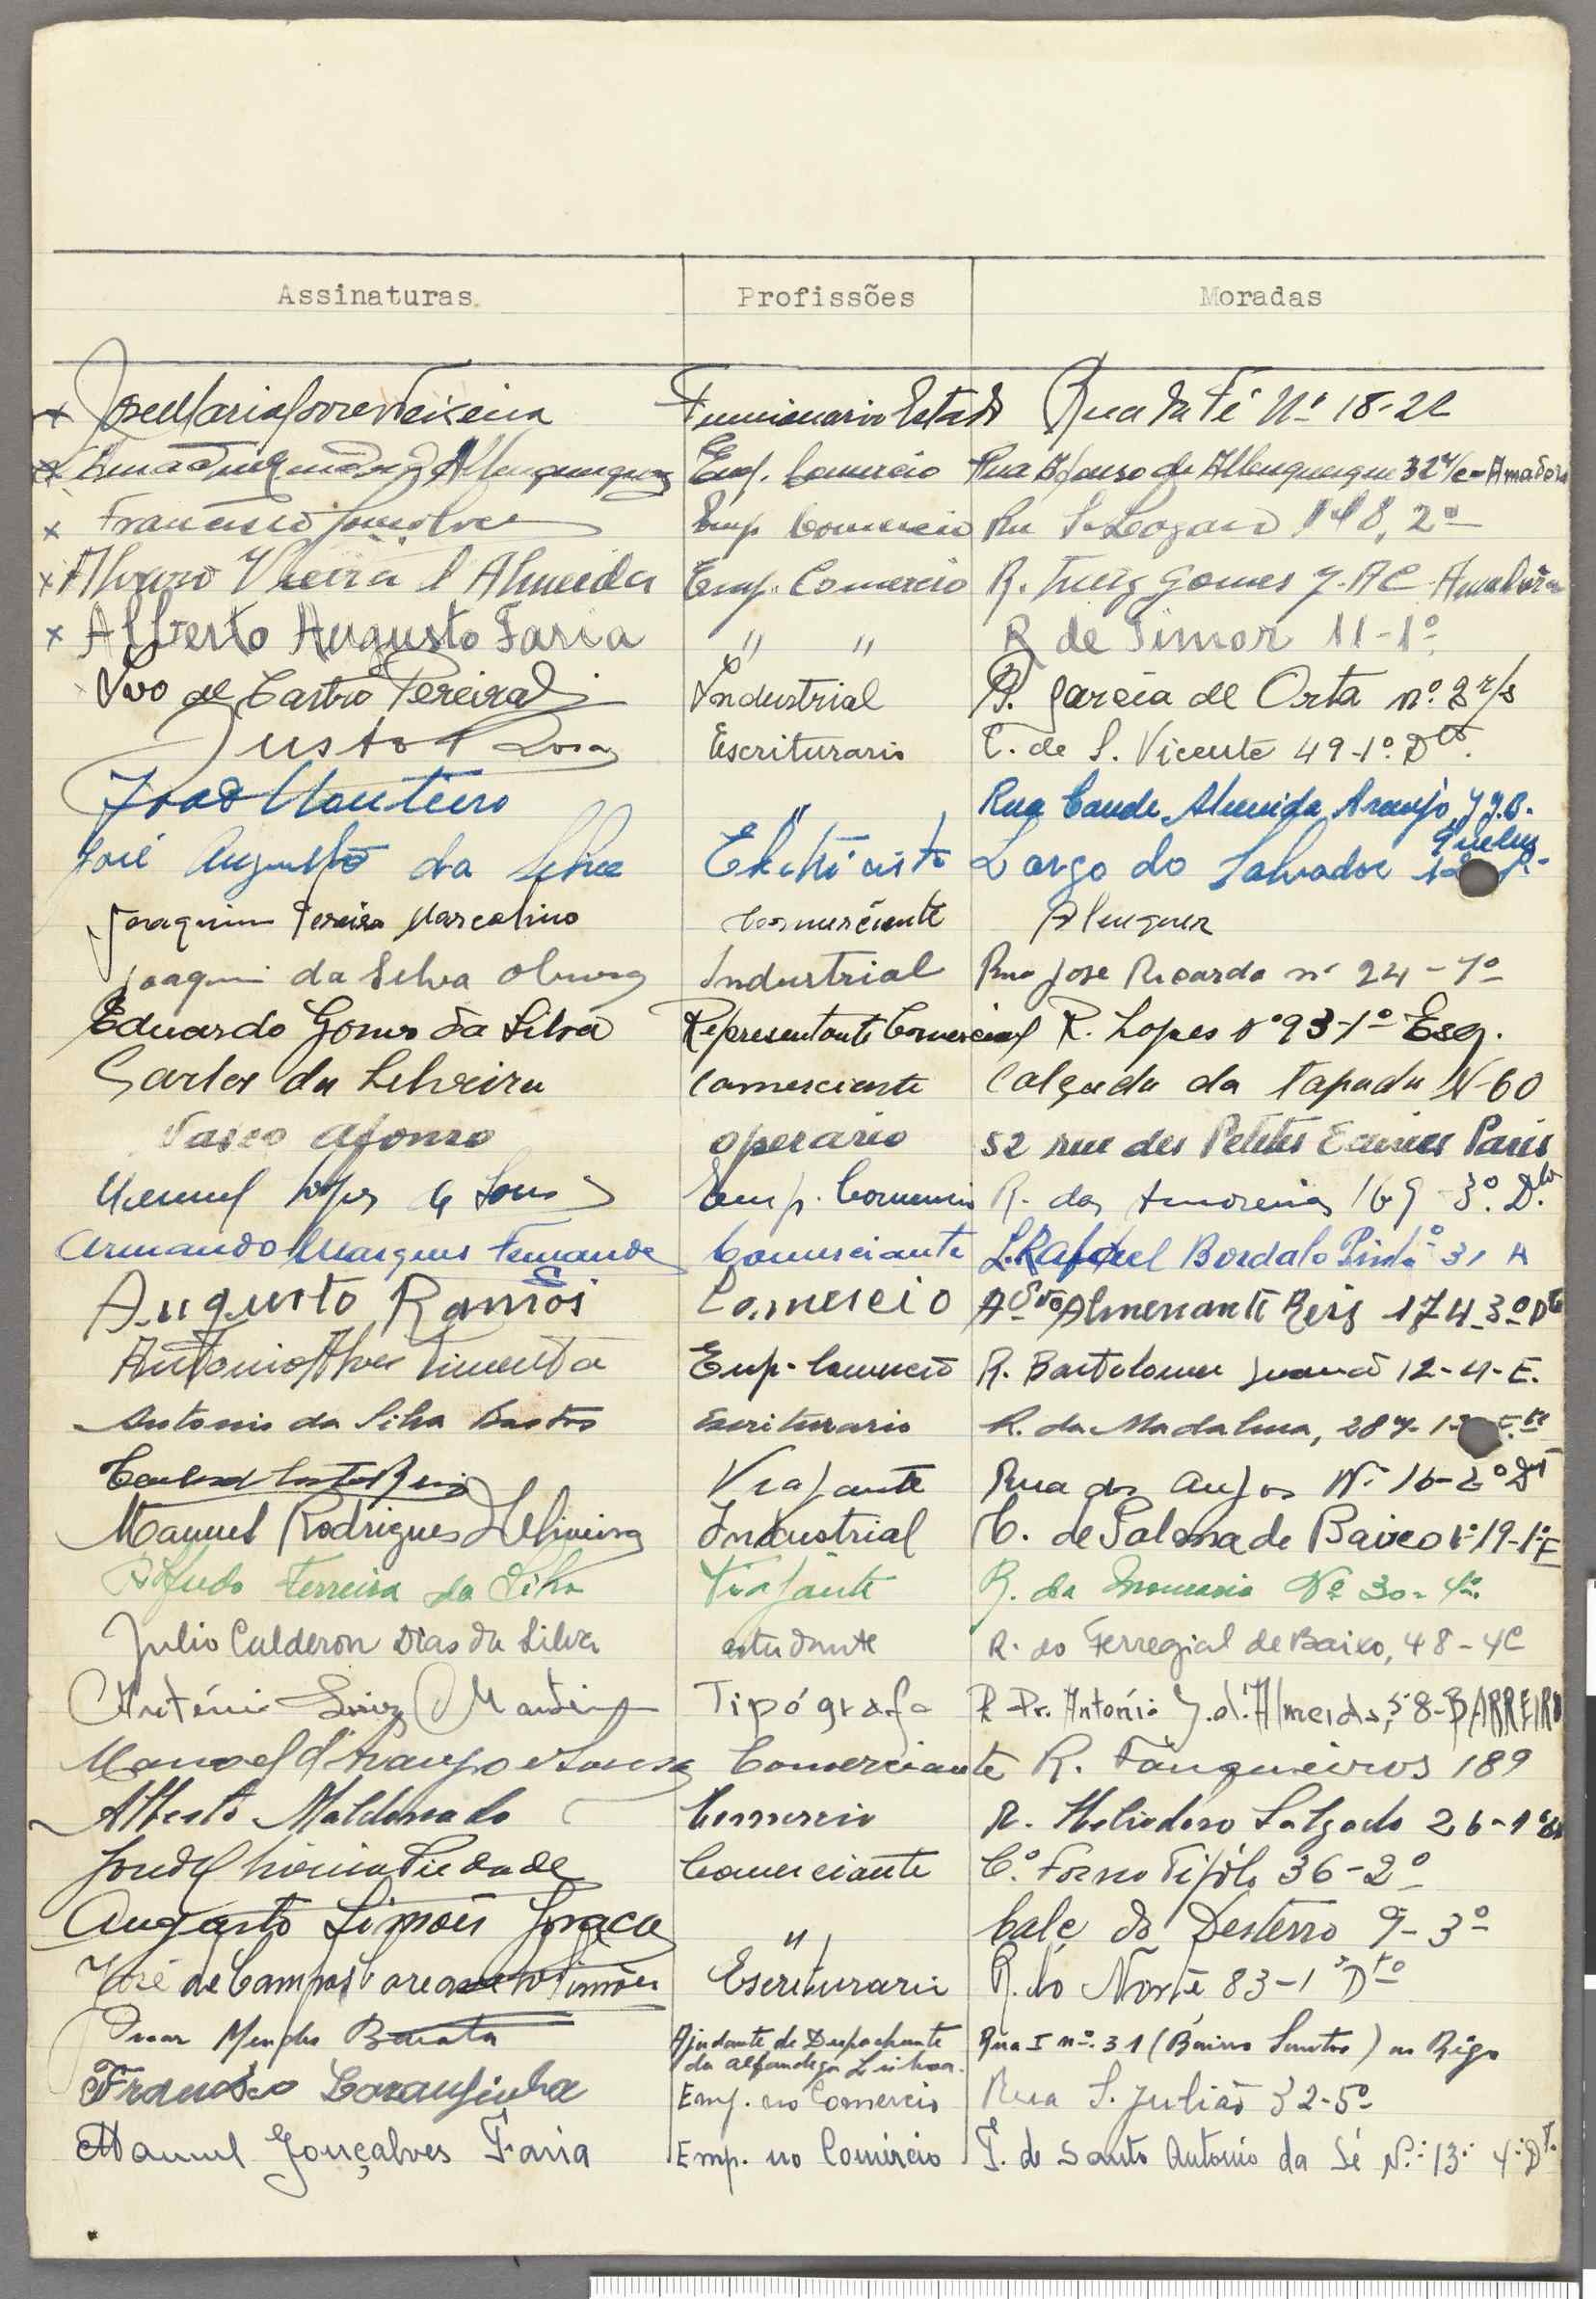 Assinaturas Profissões Moradas
x José Maria Torres Teixeira Funcionario Estado Rua da Fé Nº 18-2º
x Albuquerque Emp. Comercio Rua Afonso de Albuquerque 32 r/c - Amadora
x Francisco Gonçalves Emp Comercio Rua S. Lazaro 148, 2º
x Alvaro Vieira d'Almeida Emp. Comercio R. Luiz Gomes 7-A C - Amadora
x Alberto Augusto Faria " " R de Timor 11-1º
Ivo de Castro Pereira Industrial R. Garcia de Orta nº 2 r/c
Justo Rosa Escriturario C. de S. Vicente 49-1º Dto.
João Monteiro " Rua Conde Almeida Araujo, 7 J.B. Queluz
José Augusto da Silva Electricista Largo do Salvador
Joaquim Pereira Marcolino Comerciante Alenquer
Joaquim da Silva Industrial Rua José Ricardo nº 24-1º
Eduardo Gomes da Silva Representante Comercial R. Lopes Nº 93-1º Esq.
Carlos da Silveira Comerciante Calçada da Tapada N-60
Vasco Afonso operario 52 rue des Petites Ecuries Paris
Manuel Lopes de Sousa Emp. Comercio R. das Amoreiras 169-3º. Dto.
Armando Marques Fernandes Comerciante L. Rafael Bordalo Pinhº 31 A
Augusto Ramos Comercio Almerante Reis 174-3º Dto
Antonio Alves Pimenta Emp. Comercio R. Bartolomeu 12-4-E.
Antonio da Silva Bastos Escriturario R. da Madalena, 287-
Carlos Costa Reis Viajante Rua dos Anjos Nº 16-2º Dt
Manuel Rodrigues d'Oliveira Industrial C. de Salema de Baixo 19-1º E
Alfredo Ferreira da Silva Viajante R. da Mouraria Nº 30-4º.
Julio Calderon Dias da Silva estudante R. do Ferregial de Baixo, 48-4C
António Luiz Martins Tipógrafo R Dr. António J. d'Almeida, 58-BARREIRO
Manoel d'Araujo e Sousa Comerciante R. Fanqueiros 189
Alberto Maldonado Comercio R. Heliodoro Salgado 26-1º
Piedade Comerciante Cº. Forno Tijolo 36-2º
Augusto Simões Graça " Calç do Desterro 9-3º
José de Campos Simões Escriturario R. do Norte 83-1º Dto
Mendes Barata Ajudante de Despachante da alfandega Lisboa. Rua I nº. 31 (Bairro Santos) ao Rêgo
Francisco Laranjinha Emp. no Comercio Rua S. Julião 32-5º
Manuel Gonçalves Faria Emp. no Comércio T. de Santo António da Sé N.º 13 4º Dt.